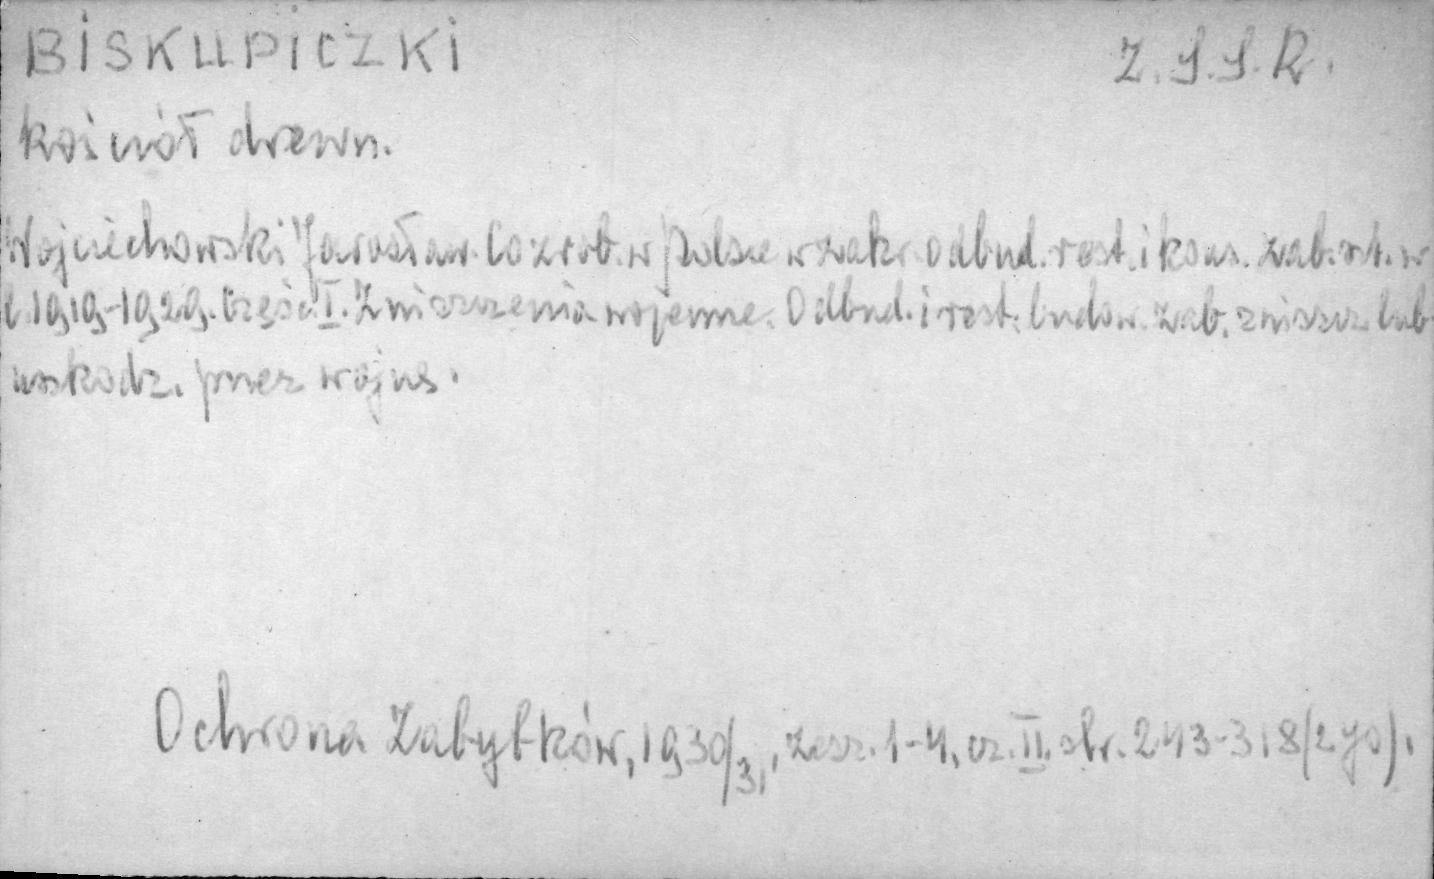 BISKUPICZKI
Z.S.S.R.
kościół drewn.
Wojciechowski Jarosław. Co zrob. w Polsce w zakr. odbud. rest. i kons. zab. szt. w
l. 1919-1929. Część I. Zniszczenia wojenne. Odbud. i rest. budow. zab. zniszcz. lub
uszkodz. przez wojnę.
Ochrona Zabytków, 1930/31, zesz. 1-4, cz. II. str. 243-318 (2 )